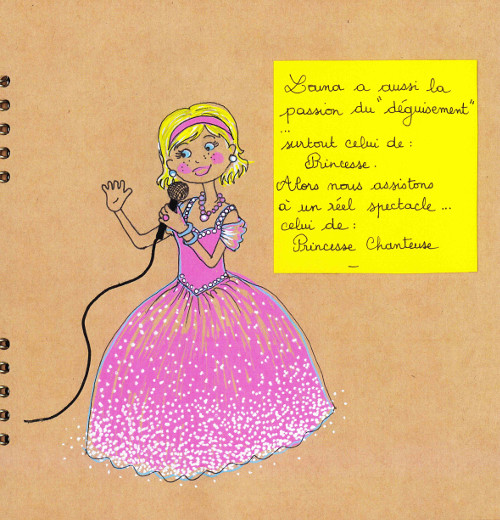 Louna a aussi la
passion du "déguisement"
...
surtout celui de :
Princesse.
Alors nous assistons
à un réel spectacle ...
celui de :
Princesse Chanteuse